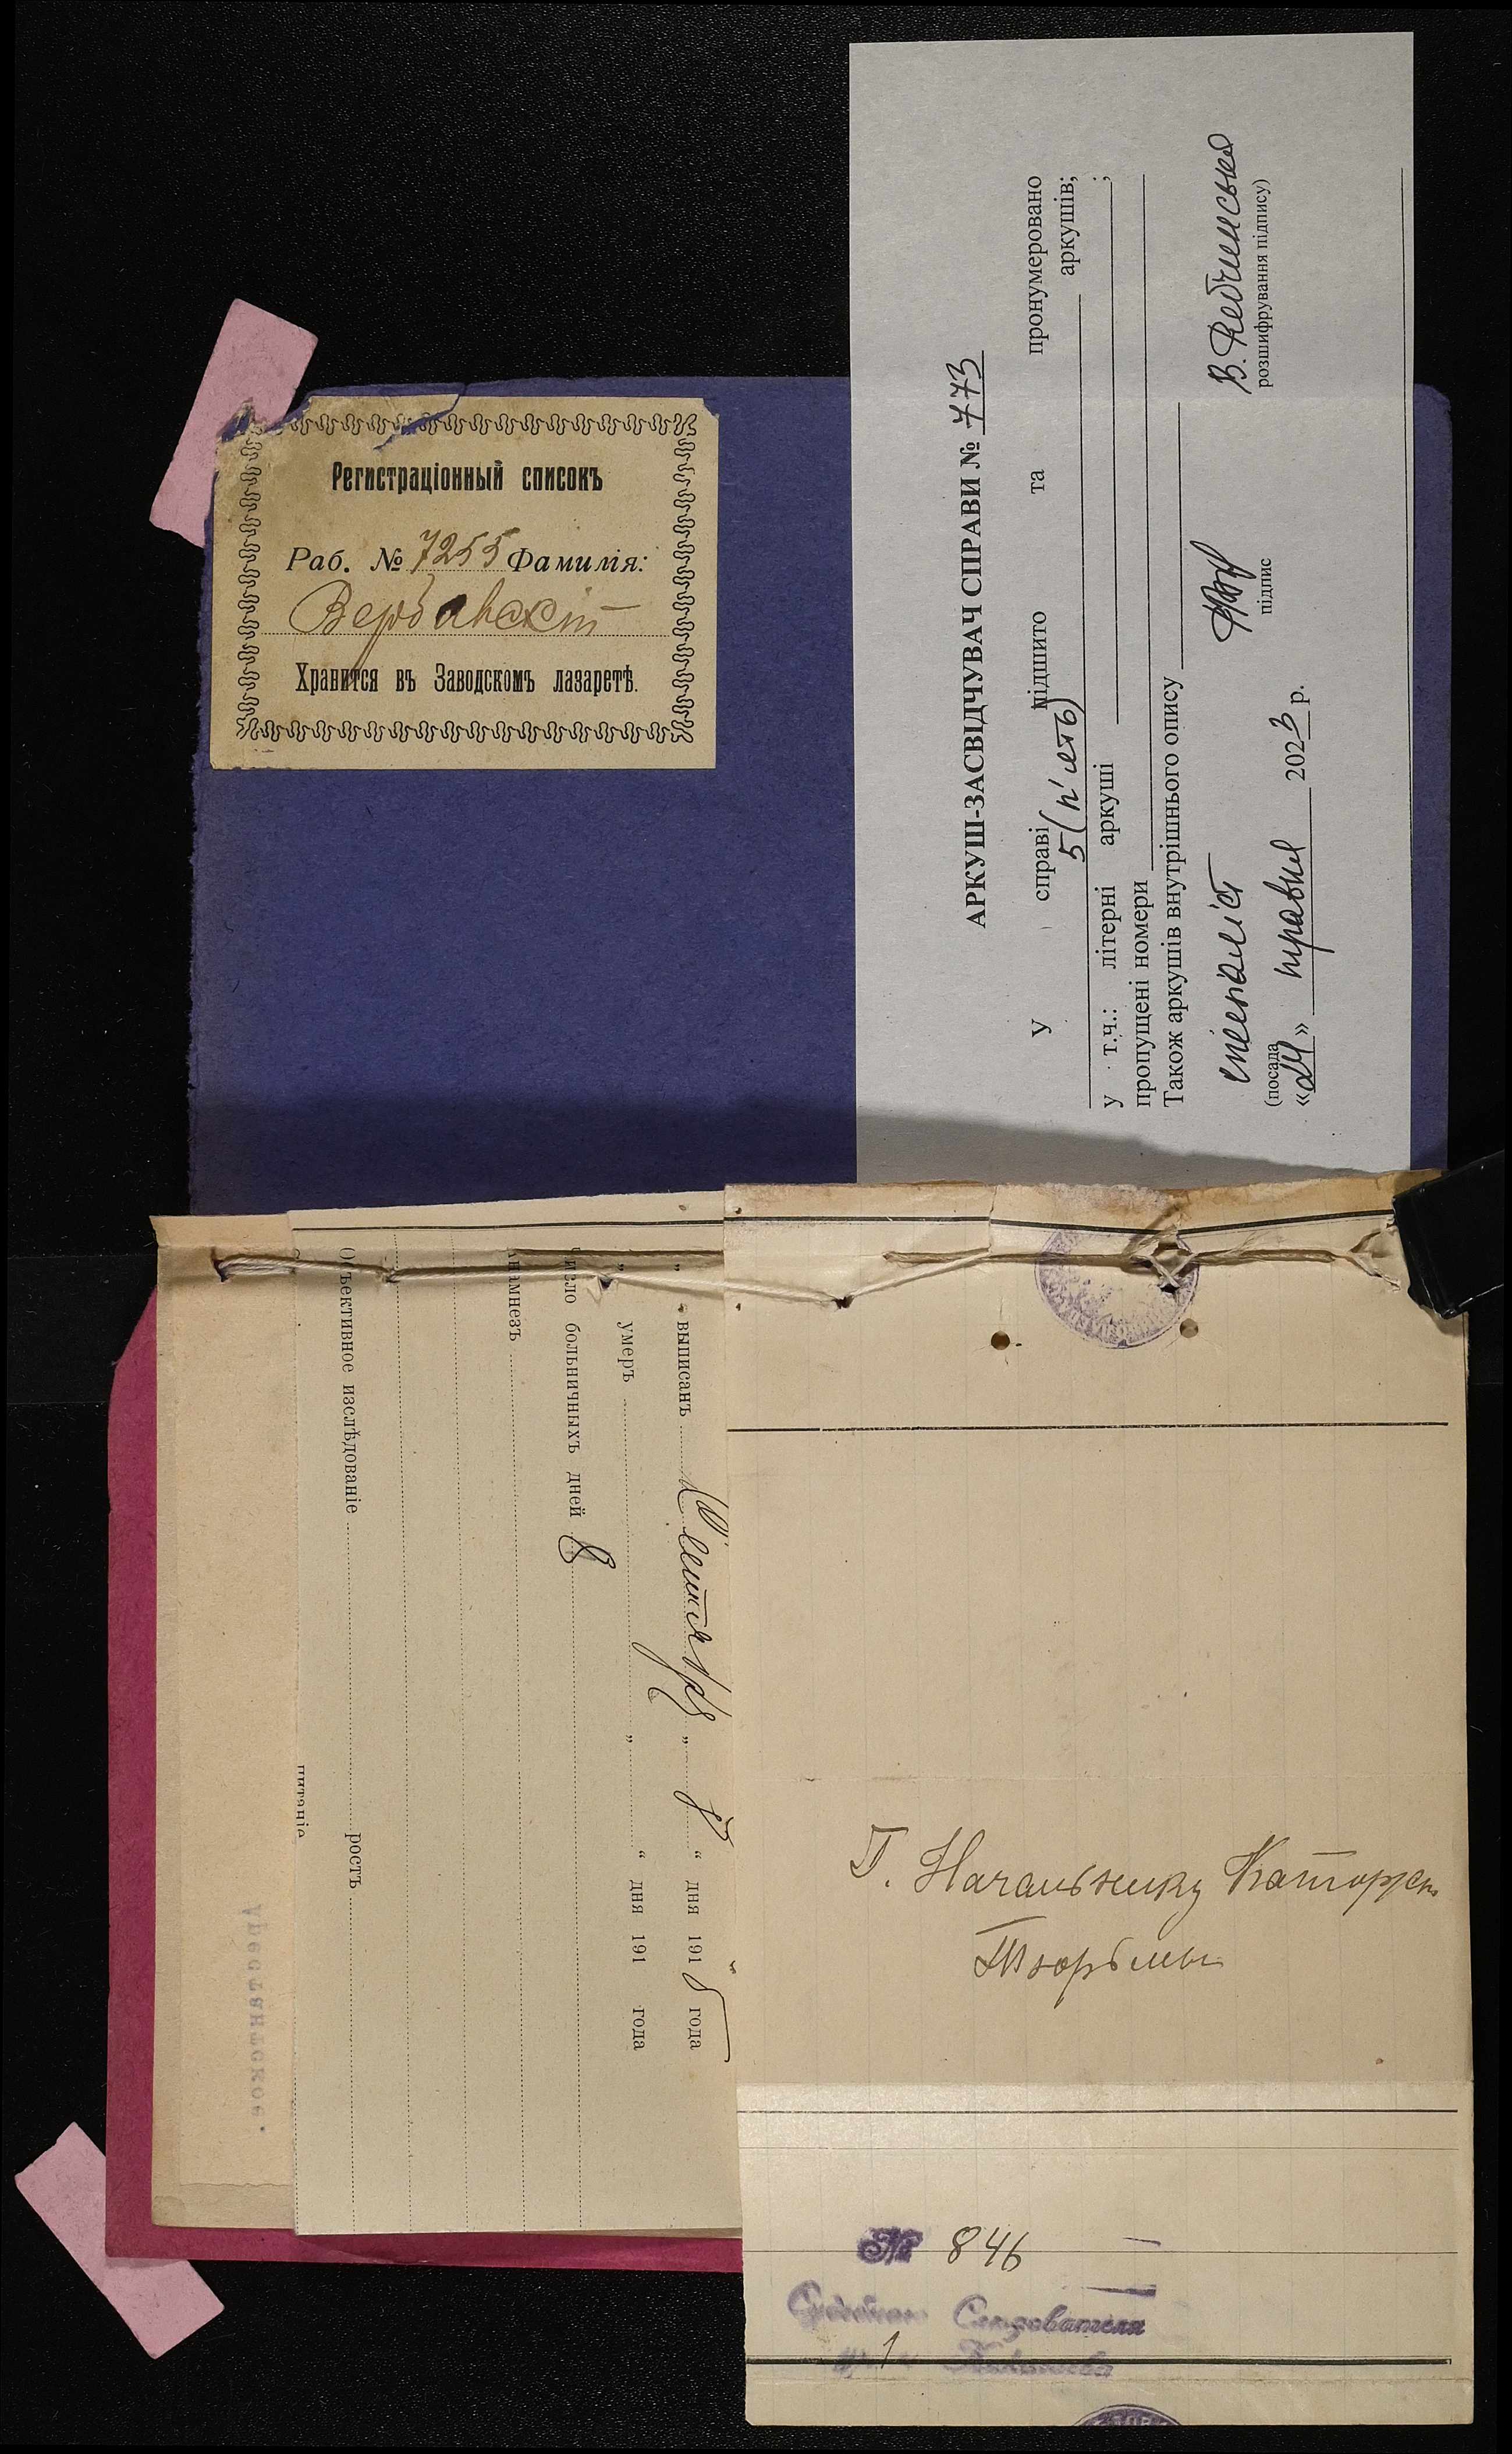 Регистраціонный списокъ
Раб. № 7255 Фамилія:
Вербавскій
Хранится въ Заводскомъ лазаретѣ.
АРКУШ-ЗАСВІДЧУВАЧ СПРАВИ № 773
У справі підшито та пронумеровано
5 (п'ять) аркушів;
у т.ч.: літерні аркуші ;
пропущені номери
Також аркушів внутрішнього опису
спеціаліст В.
(посада підпис розшифрування підпису)
«24» травня 2023 р.
„ выписанъ Сентября „ 8 “ дня 1915 года
„ умеръ „ “ дня 191 года
число больничныхъ дней 8
Анамнезъ
Объективное изслѣдованіе ростъ
питаніе
Арестантское.
Г. Начальнику Каторжн
Тюрьмы
№ 846
Судебнаго Слѣдователя
1